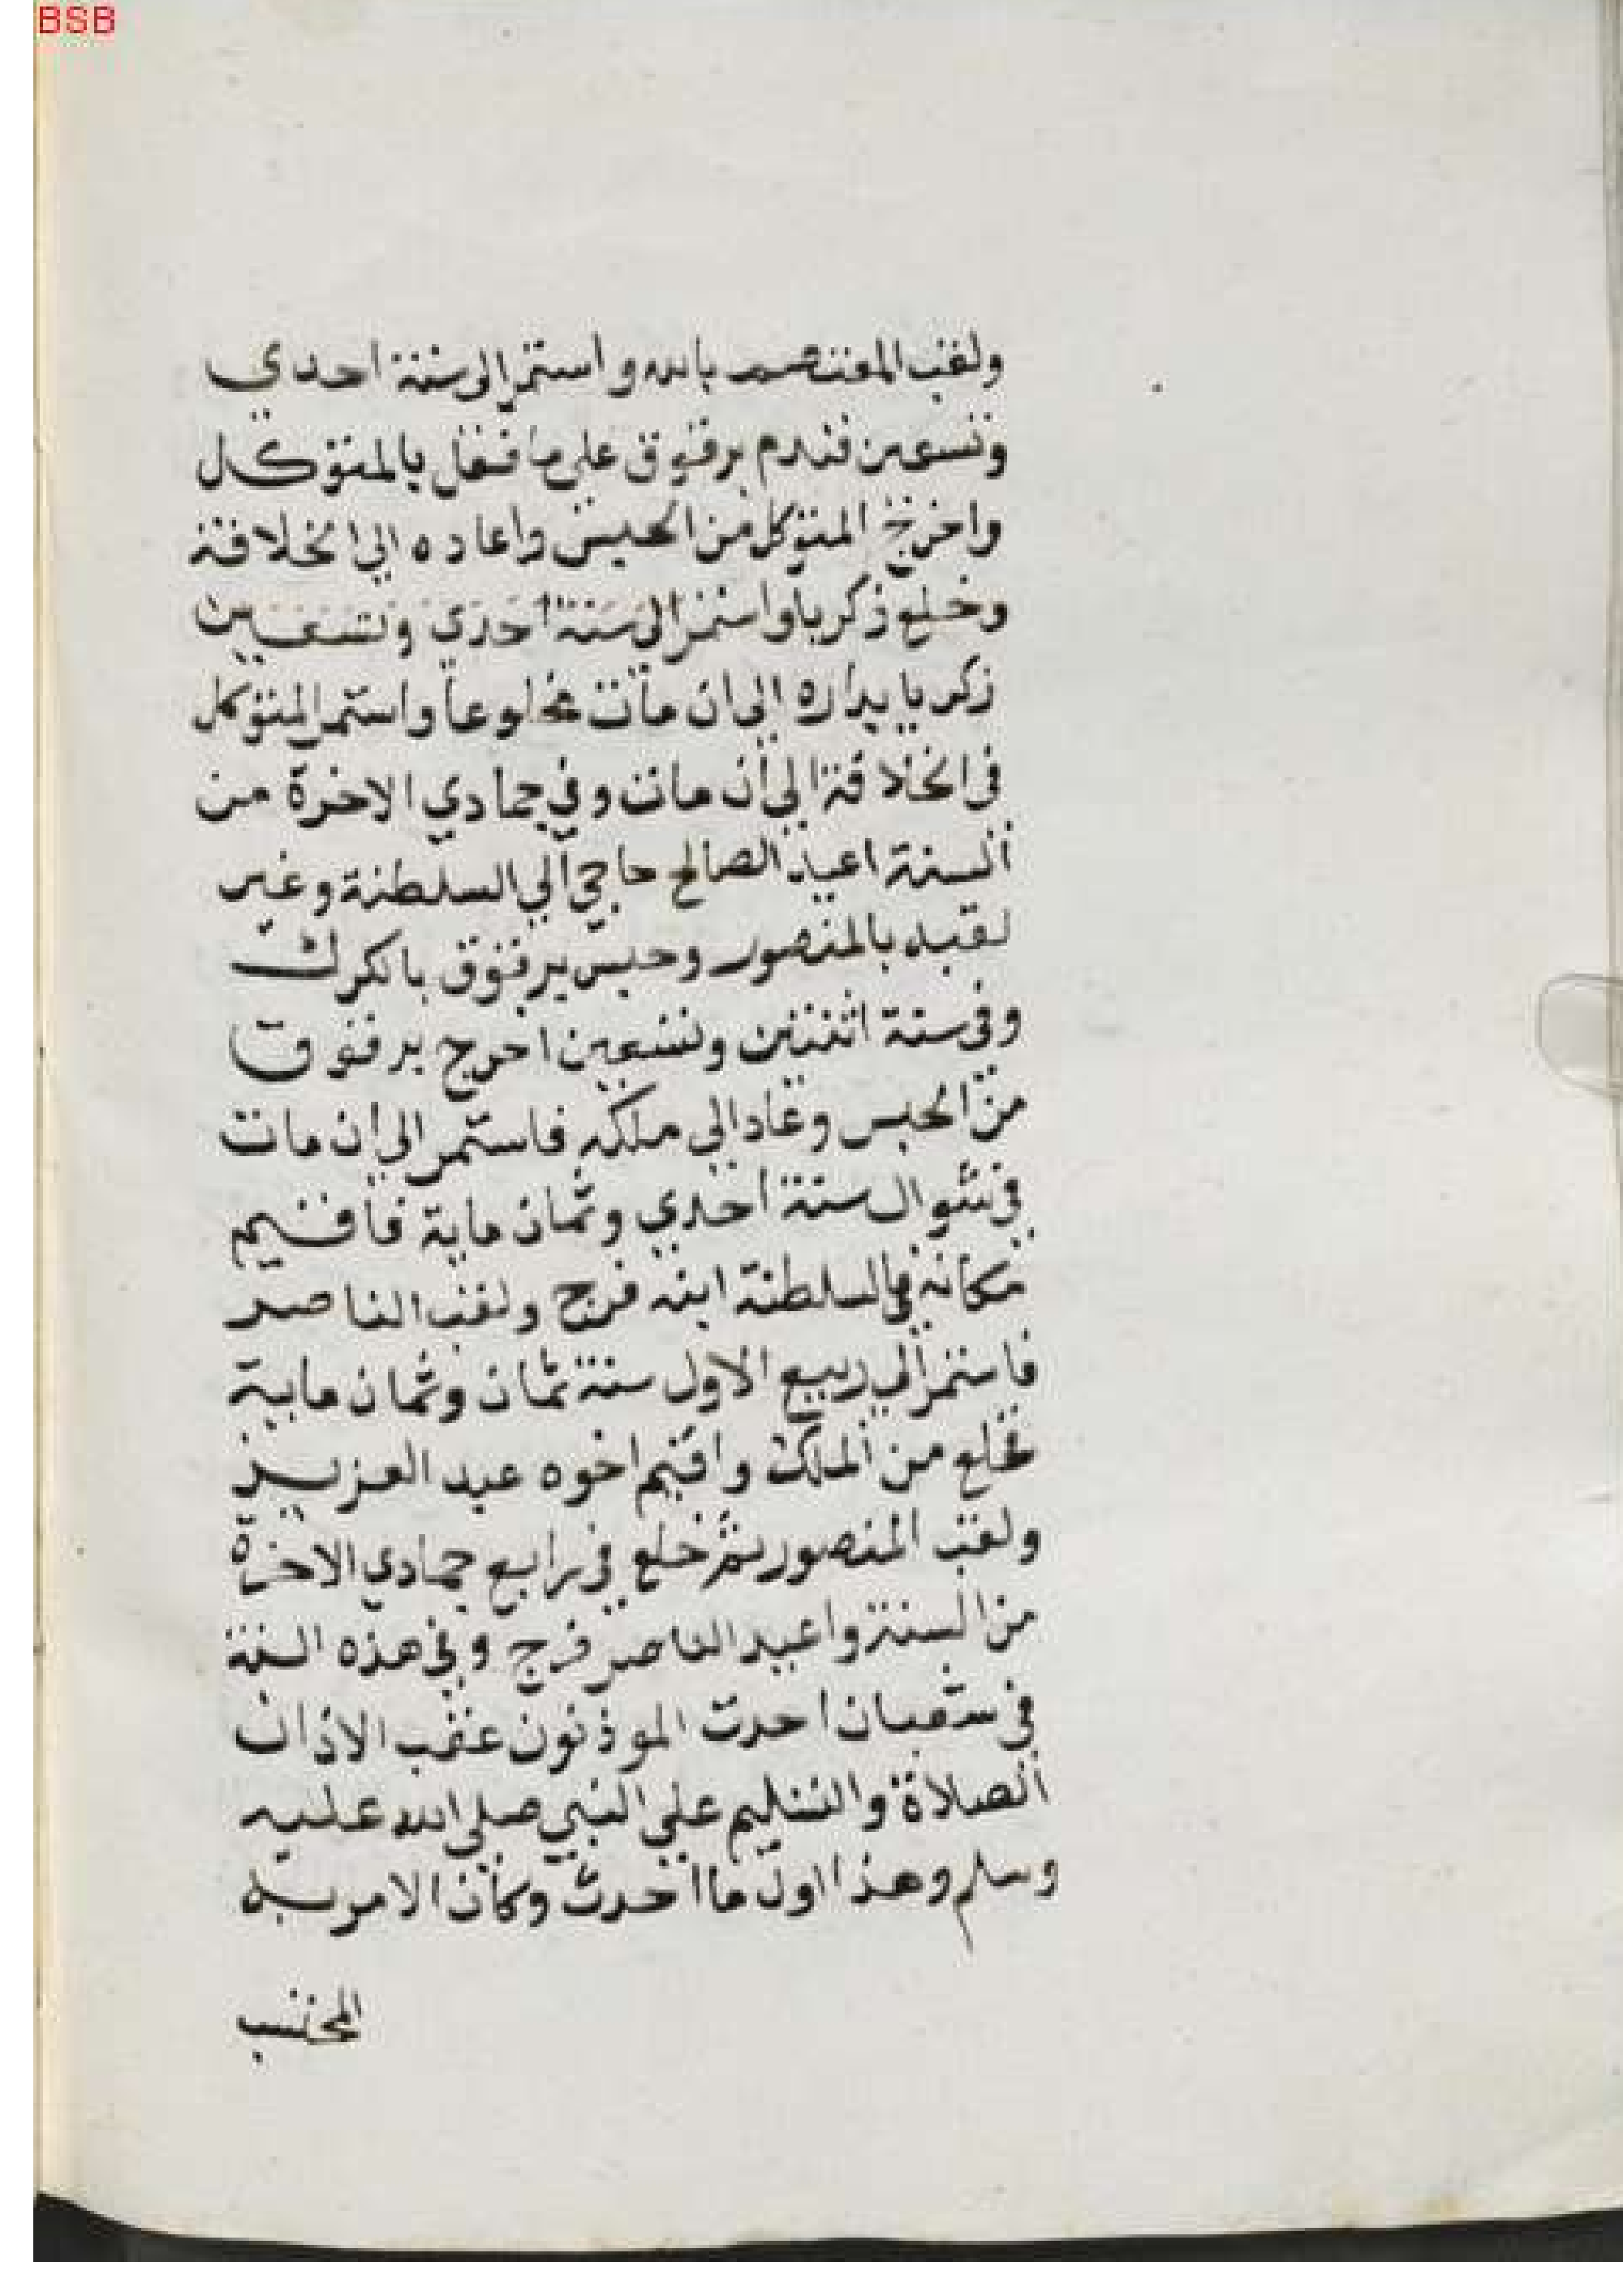 BSB
ولقب المعتصم بالله واستمر الى سنة احدي
وتسعين فندم برقوق على ما فعل بالمتوكل
واخرج المتوكل من الحبس واعاده الي الخلافة
وخلع زكريا واستمر الى سنة احدي وتسعين
زكريا بداره الى ان مات مخلوعا واستمر المتوكل
في الخلافة الى ان مات وفي جمادي الاخرة من
السنة اعيد الصالح حاجي الي السلطنة وغير
لقبه بالمنصور وحبس برقوق بالكرك
وفي سنة اثنتين وتسعين اخرج برقوق
من الحبس وعاد الى ملكه فاستمر الى ان مات
في شوال سنة احدي وثمان ماية فاقيم
مكانه في السلطنة ابنه فرج ولقب الناصر
فاستمر الي ربيع الاول سنة ثمان وثمان ماية
فخلع من الملك واقيم اخوه عبد العزيز
ولقب المنصور ثم خلع في رابع جمادي الاخرة
من السنة واعيد الناصر فرج وفي هذه السنة
في شعبان احدث الموذنون عقب الاذان
الصلاة والتسليم علي النبي صلى الله عليه
وسلم وهذا اول ما احدث وكان الامر به
المحتسب